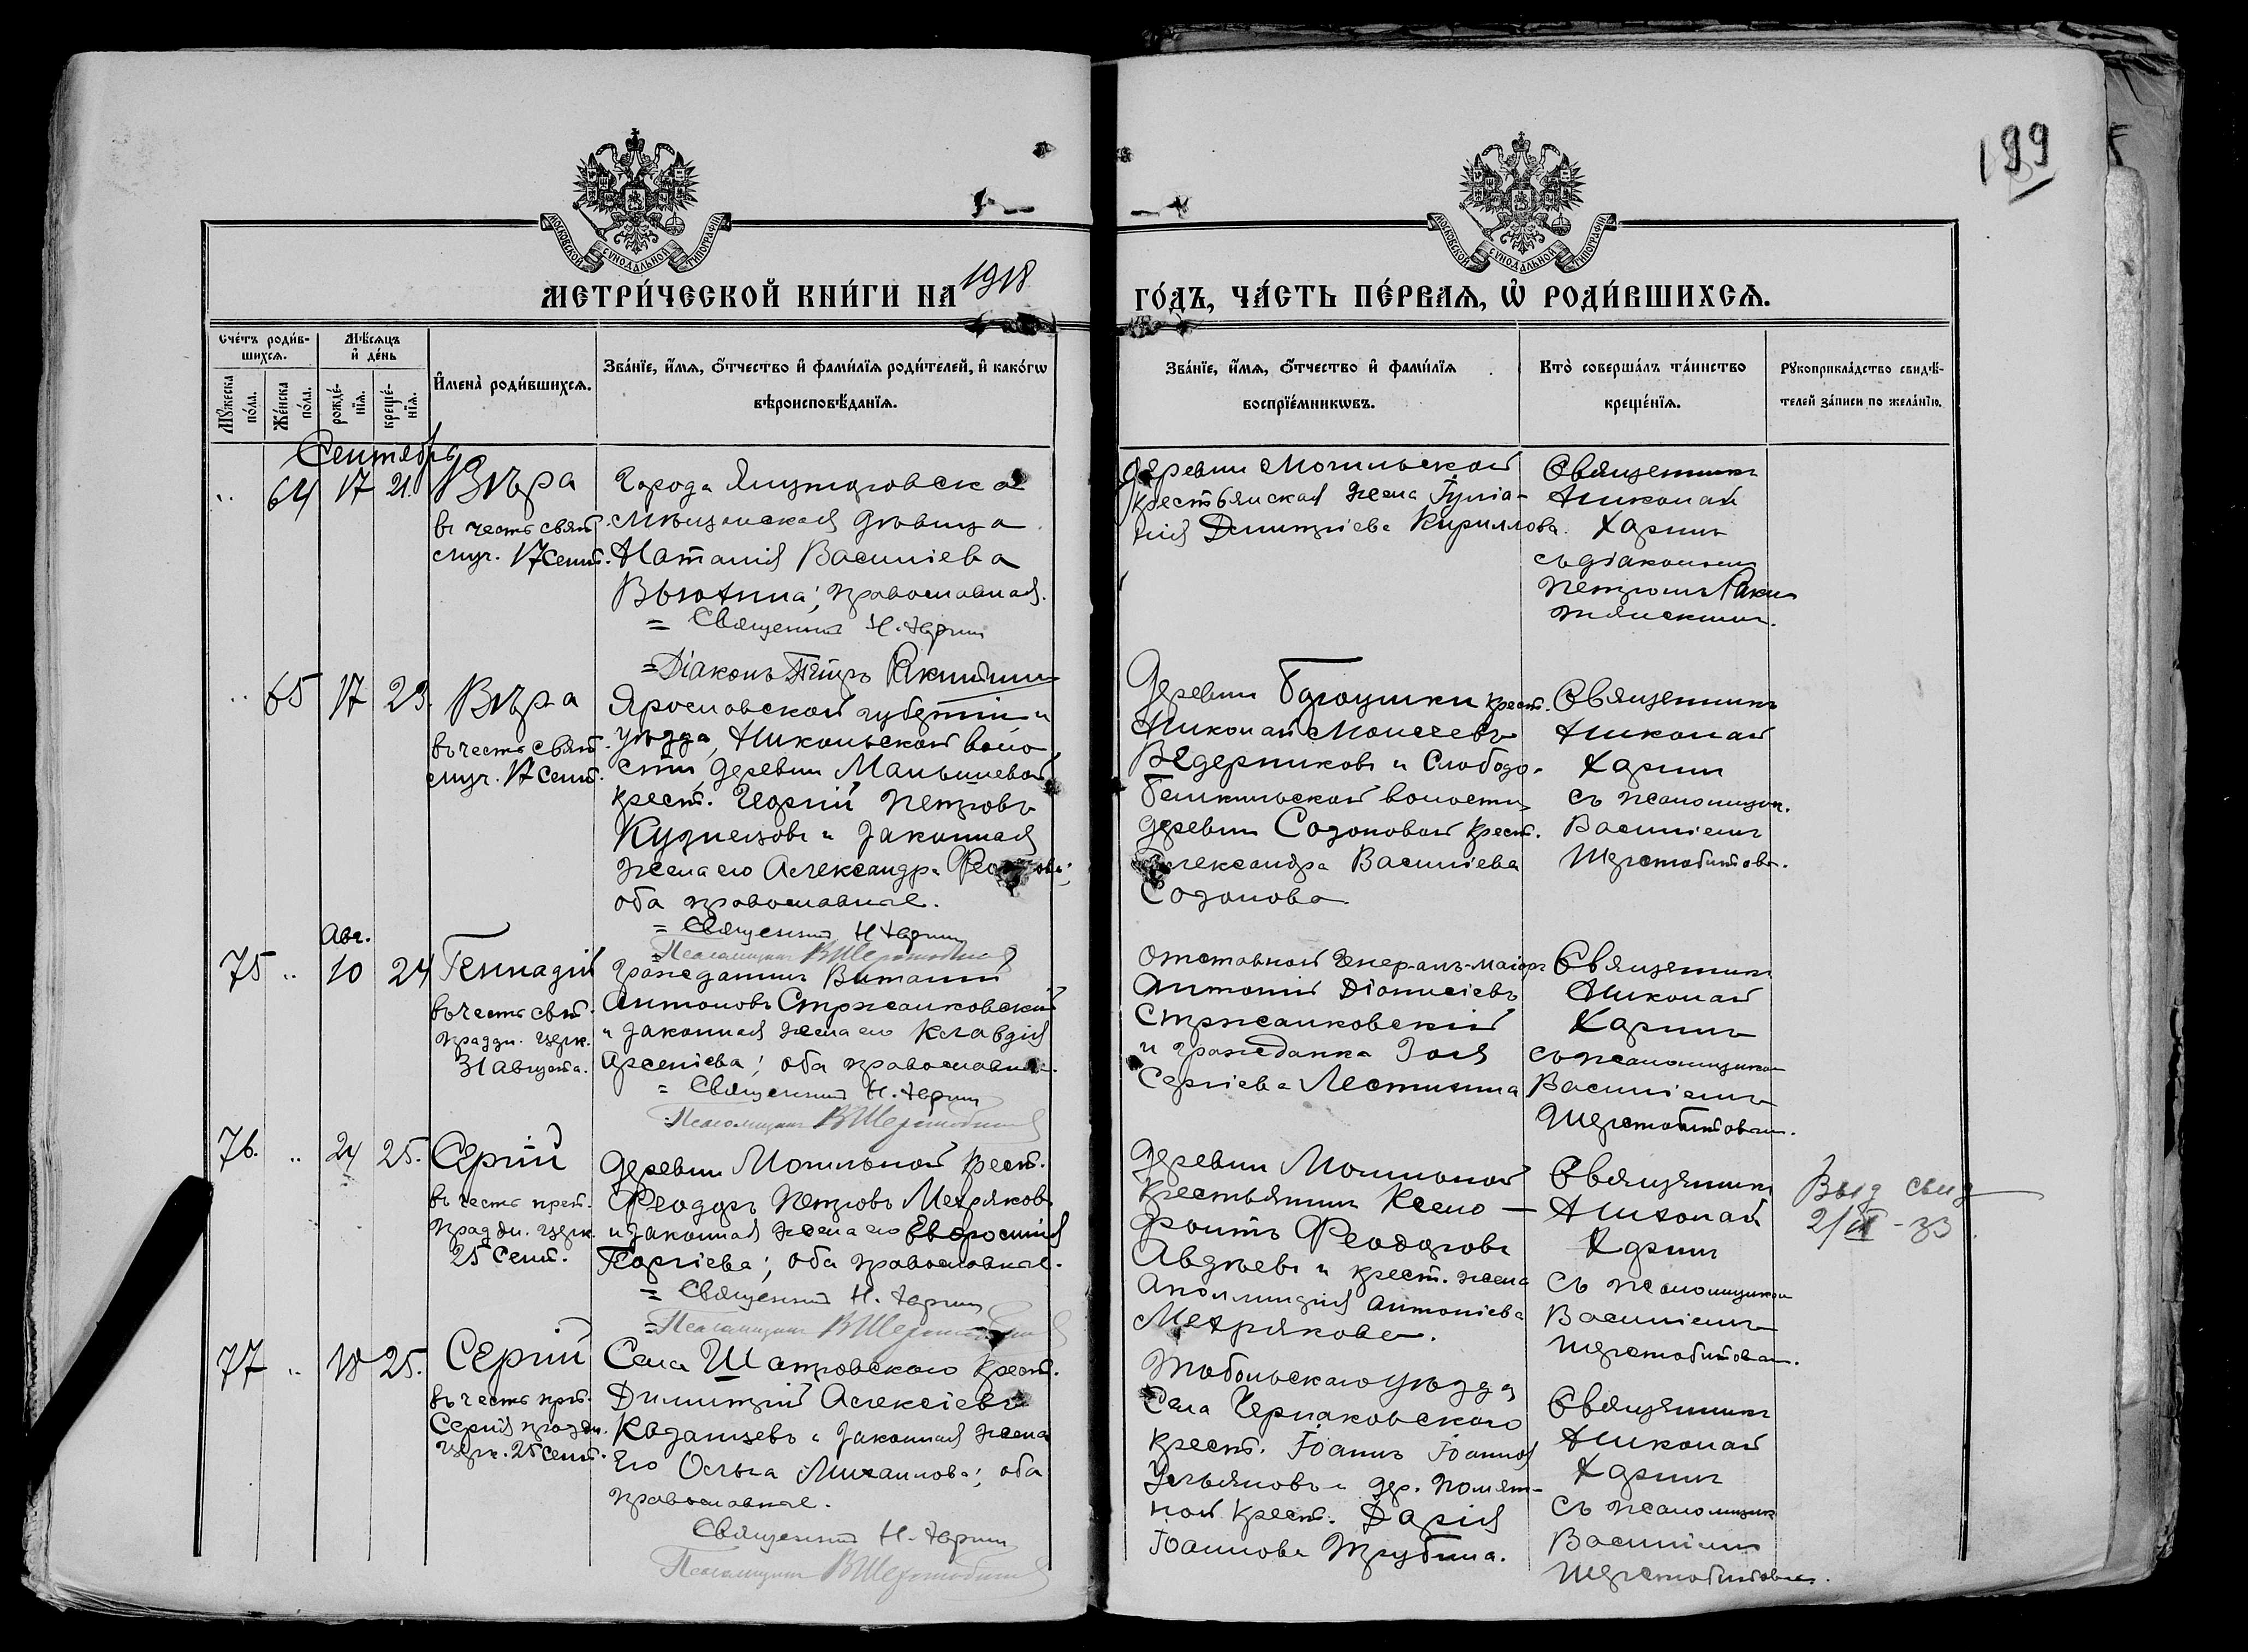 199
МОСКОВСКОЙ СУНОДАЛЬНОЙ ТИПОГРАФІИ
МОСКОВСКОЙ СУНОДАЛЬНОЙ ТИПОГРАФІИ
МЕТРИ́ЧЕСКОЙ КНИ́ГИ НА 1918
ГО́ДЪ, ЧА́СТЬ ПЕ́РВАѦ, Ѽ РОДИ́ВШИХСѦ.
Сче́тъ роди́в-
шихсѧ.
Мѣ́сѧцъ
и҆ де́нь
Мꙋ́жеска
по́ла.
Же́нска
по́ла.
рожде́-
нїѧ.
креще́-
нїѧ.
И҆мена̀ роди́вшихсѧ.
Зва́нїе, и҆́мѧ, ѻ҆́тчество и҆ фами́лїѧ роди́телей, и҆ како́гѡ
вѣроисповѣ́данїѧ.
Зва́нїе, и҆́мѧ, ѻ҆́тчество и҆ фами́лїѧ
воспрїе́мникѡвъ.
Кто̀ соверша́лъ та́инство
креще́нїѧ.
Рꙋкоприкла́дство свидѣ́-
телей за́писи по жела́нїю.
Сентябрь
64 17 21. Вѣра
въ честь свят.
муч. 17 Сент.
Города Ялуторовска
мѣщанская дѣвица
Наталія Василіева
Вьюхина; православная.
= Священник Н. Харин
= Діаконъ Петръ
деревни Могильской
крестьянская жена Іулiа-
нія Димитріева Кириллова.
Священникъ
Николай
Харинъ
съ діакономъ
Петромъ
65 17 23. Вѣра
въ честь свят.
муч. 17 Сент.
Ярославской губерніи и
уѣзда, Никольской воло
сти, деревни Малышевой
крест. Георгій Петровъ
Кузнецовъ и законная
жена его Александра
оба православные.
= Священник Н Харин
Псаломщикъ В Шерстобитов
Деревни крест.
Николай Моисеевъ
Ведерниковъ и Слободо-
Бешкильской волости
деревни Созоновой крест.
Александра Василіева
Созонова
Священникъ
Николай
Харин
съ псаломщик.
Василіемъ
Шерстобитовы.
Авг.
75 10 24 Геннадій
въ честь свят.
праздн. церк.
31 Августа.
Гражданинъ Виталий
Антоновъ Стржалковский
и законная жена его Клавдія
Арсеніева; оба православные.
= Священник Н. Харин
Псаломщикъ В Шерстобитов
Отставной Генералъ-маіоръ
Антоній Діонисіевъ
Стржалковскій
и гражданка Зоя
Сергіева Лестишина
Священникъ
Николай
Харинъ
съ псаломщиком
Василіемъ
Шерстобитовым.
76. 24 25. Сергій
въ честь преп.
праздн. церк.
25 Сент.
деревни Могильной крест.
Феодоръ Петровъ Мехряковъ
и законная жена его Евфросинія
Георгіева; оба православные.
= Священник Н. Харин
= Псаломщикъ В Шерстобитов
деревни Могильной
крестьянин Ксено-
фонтъ Феодоровъ
Авдѣевъ и крест. жена
Аполлинарія Антоніева
Мехрякова.
Священникъ
Николай
Харин
съ псаломщиком
Василіемъ
Шерстобитовым.
Выд свид
2/IX - 33.
77 18 25. Сергій
въ честь преп.
Сергія праздн.
церк. 25 Сент.
Села Шатровского крест.
Димитрий Алексіевъ
Казанцевъ и законная жена
его Ольга Михаилова; оба
православные.
Священник Н. Харин
Псаломщикъ В Шерстобитов
Тобольскаго уѣзда
села Черпаковскаго
крест. Іоаннъ Іоаннов
Ульяновъ и дер.
крест. Дарія
Іоаннова Трубина.
Священникъ
Николай
Харинъ
съ псаломщик
Василіем
Шерстобитовым.